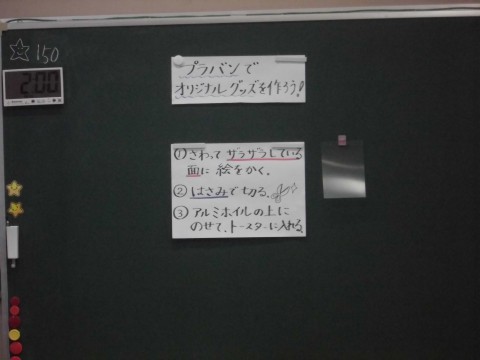 ☆150
2:00
プラバンで
オリジナルグッズを作ろう!
①さわって ザラザラしている
面に 絵をかく。
②はさみで切る。
③アルミホイルの上に
のせて、トースターに入れる。